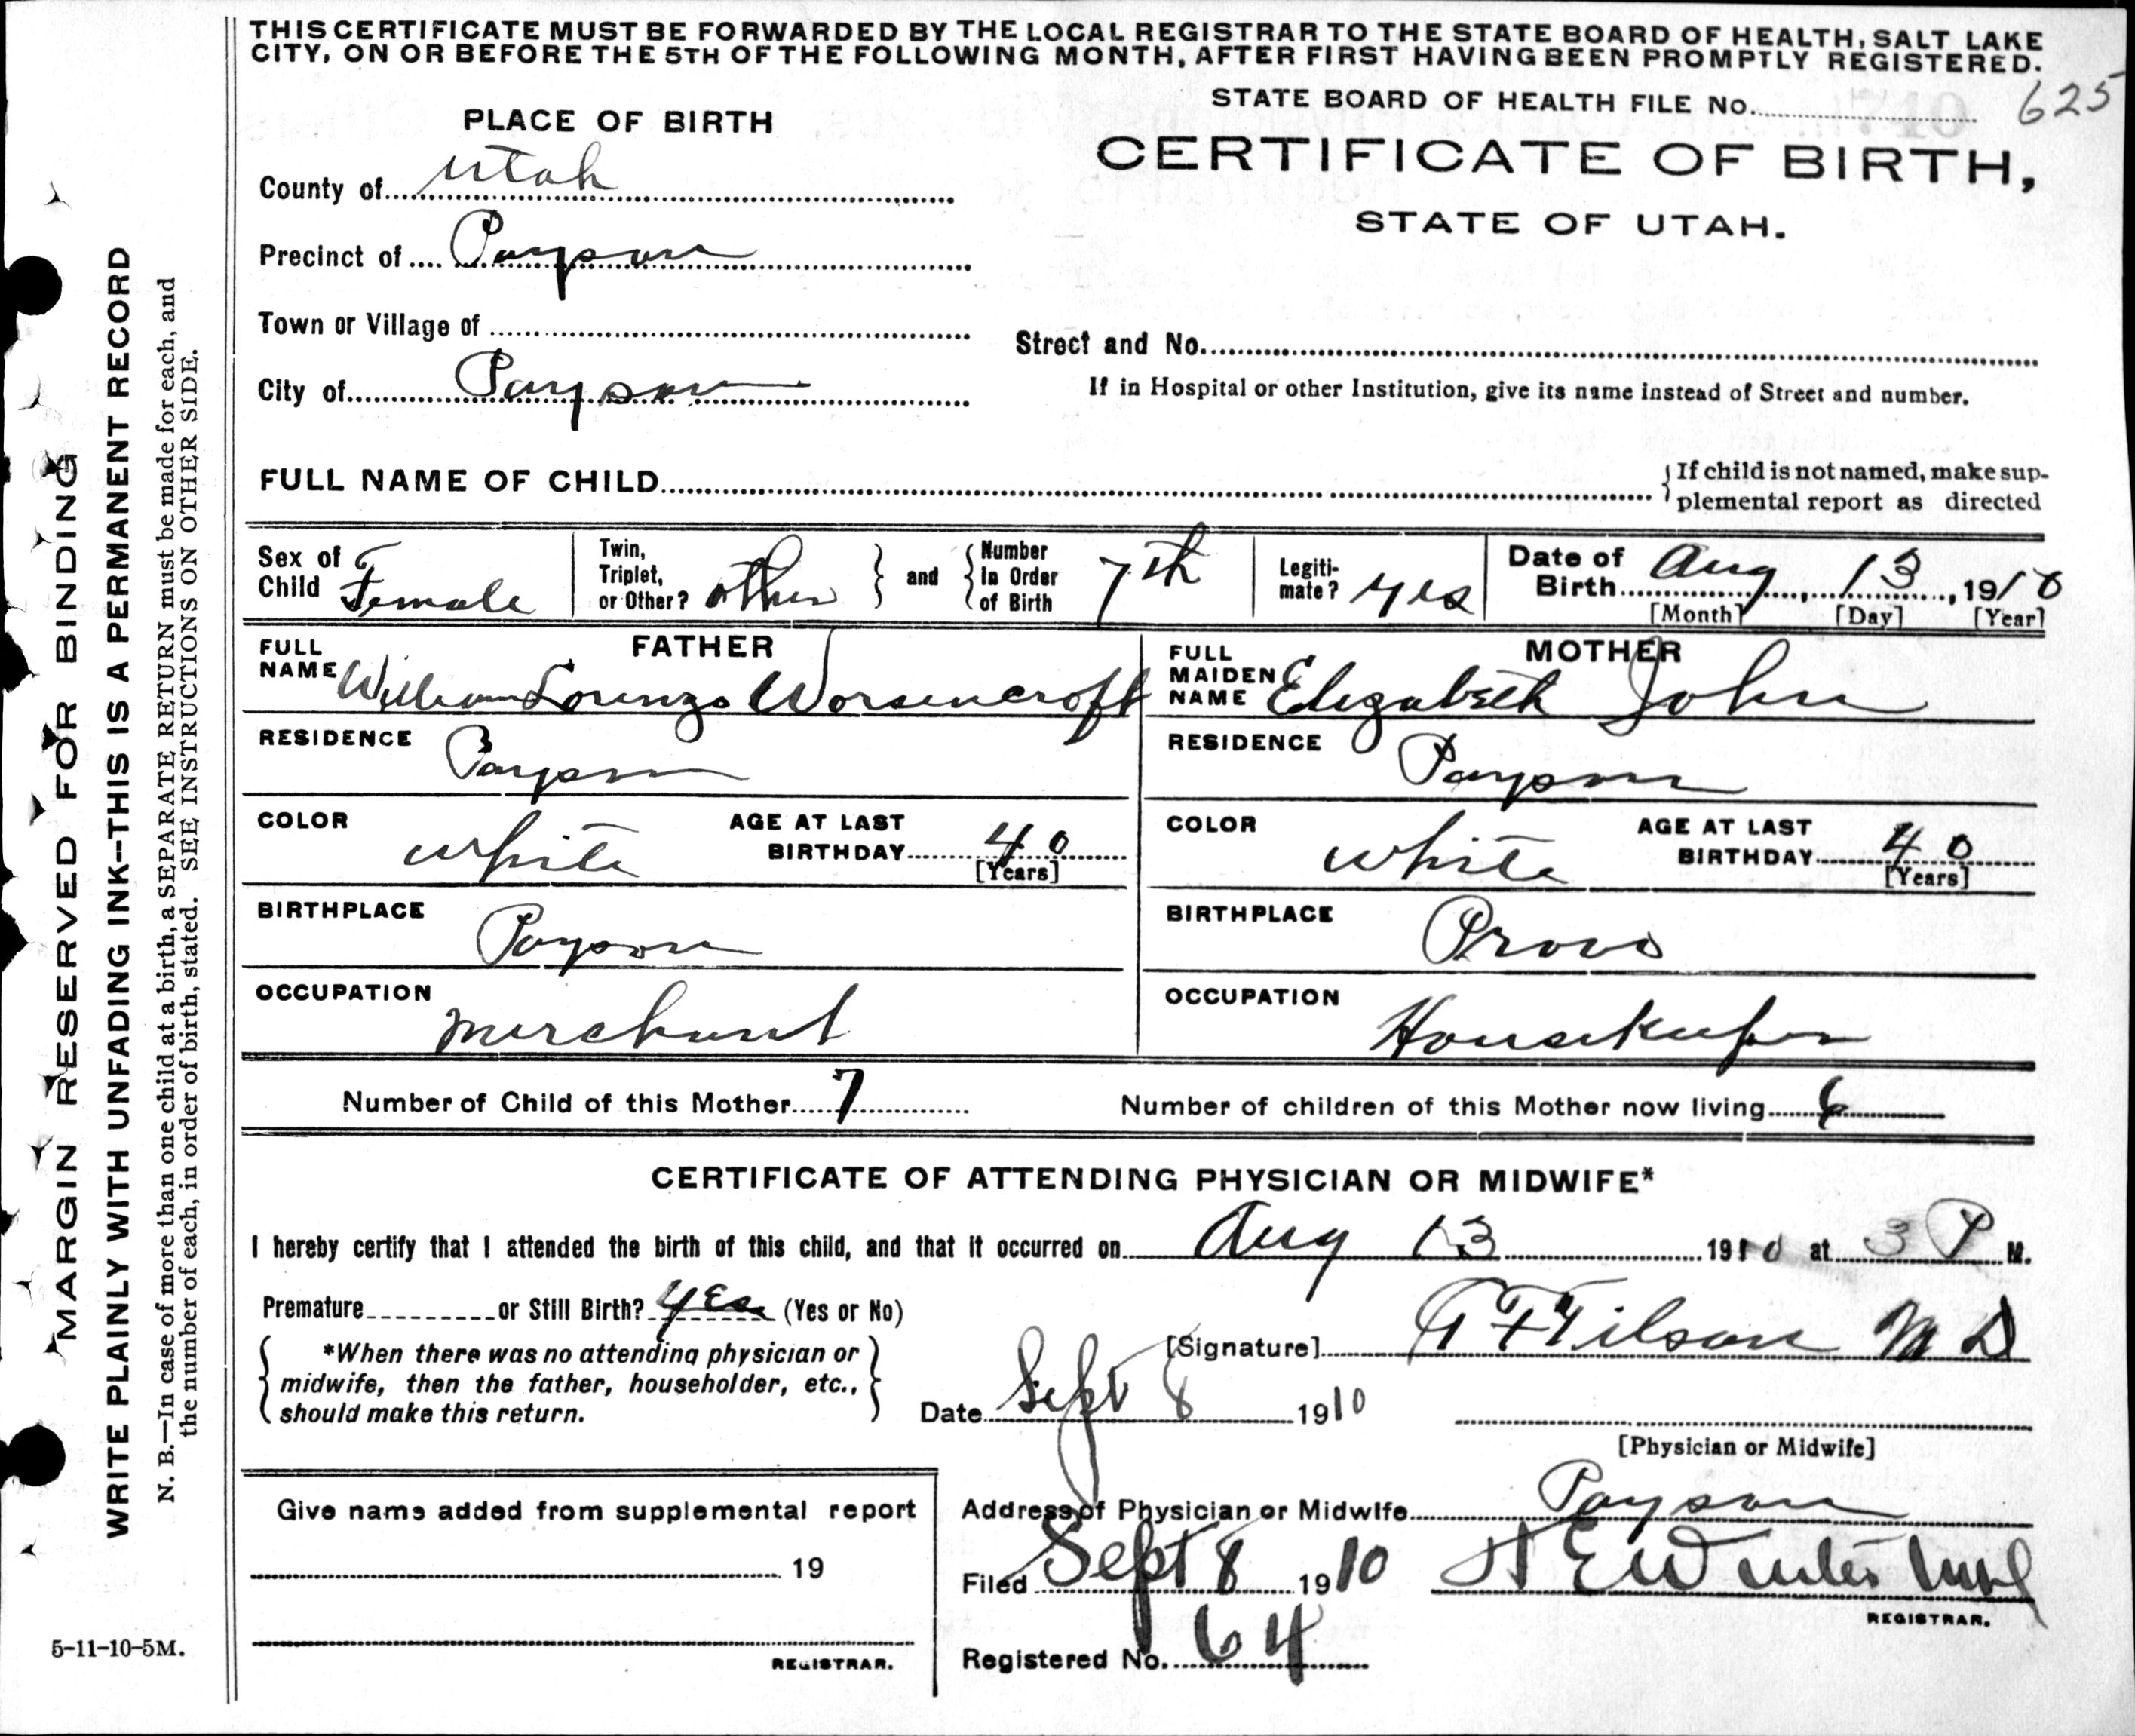 THIS CERTIFICATE MUST BE FORWARDED BY THE LOCAL REGISTRAR TO THE STATE BOARD OF HEALTH, SALT LAKE
CITY, ON OR BEFORE THE 5TH OF THE FOLLOWING MONTH, AFTER FIRST HAVING BEEN PROMPTLY REGISTERED.
STATE BOARD OF HEALTH FILE No. 625
PLACE OF BIRTH
CERTIFICATE OF BIRTH,
STATE OF UTAH.
County of Utah
Precinct of Payson
Town or Village of
Street and No.
City of Payson
If in Hospital or other Institution, give its name instead of Street and number.
FULL NAME OF CHILD
If child is not named, make sup-
plemental report as directed
Sex of
Child Female
Twin,
Triplet,
or Other? other
and
Number
In Order
of Birth 7th
Legiti-
mate? yes
Date of
Birth Aug, 13, 1910
[Month] [Day] [Year]
FATHER
FULL
NAME William Lorenzo Worsencroft
RESIDENCE Payson
COLOR white
AGE AT LAST
BIRTHDAY 40
[Years]
BIRTHPLACE Payson
OCCUPATION merchant
MOTHER
FULL
MAIDEN
NAME Elizabeth John
RESIDENCE Payson
COLOR white
AGE AT LAST
BIRTHDAY 40
[Years]
BIRTHPLACE Provo
OCCUPATION Housekeeper
Number of Child of this Mother 7
Number of children of this Mother now living 6
CERTIFICATE OF ATTENDING PHYSICIAN OR MIDWIFE*
I hereby certify that I attended the birth of this child, and that it occurred on Aug 13 1910 at 3 P M.
Premature or Still Birth? yes (Yes or No)
*When there was no attending physician or
midwife, then the father, householder, etc.,
should make this return.
[Signature] Tilson M D
Date Sept 8 1910
[Physician or Midwife]
Give name added from supplemental report
19
REGISTRAR.
Address of Physician or Midwife Payson
Filed Sept 8 1910
REGISTRAR.
Registered No. 64
MARGIN RESERVED FOR BINDING
WRITE PLAINLY WITH UNFADING INK--THIS IS A PERMANENT RECORD
N. B.—In case of more than one child at a birth, a SEPARATE RETURN must be made for each, and
the number of each, in order of birth, stated. SEE INSTRUCTIONS ON OTHER SIDE.
5-11-10-5M.